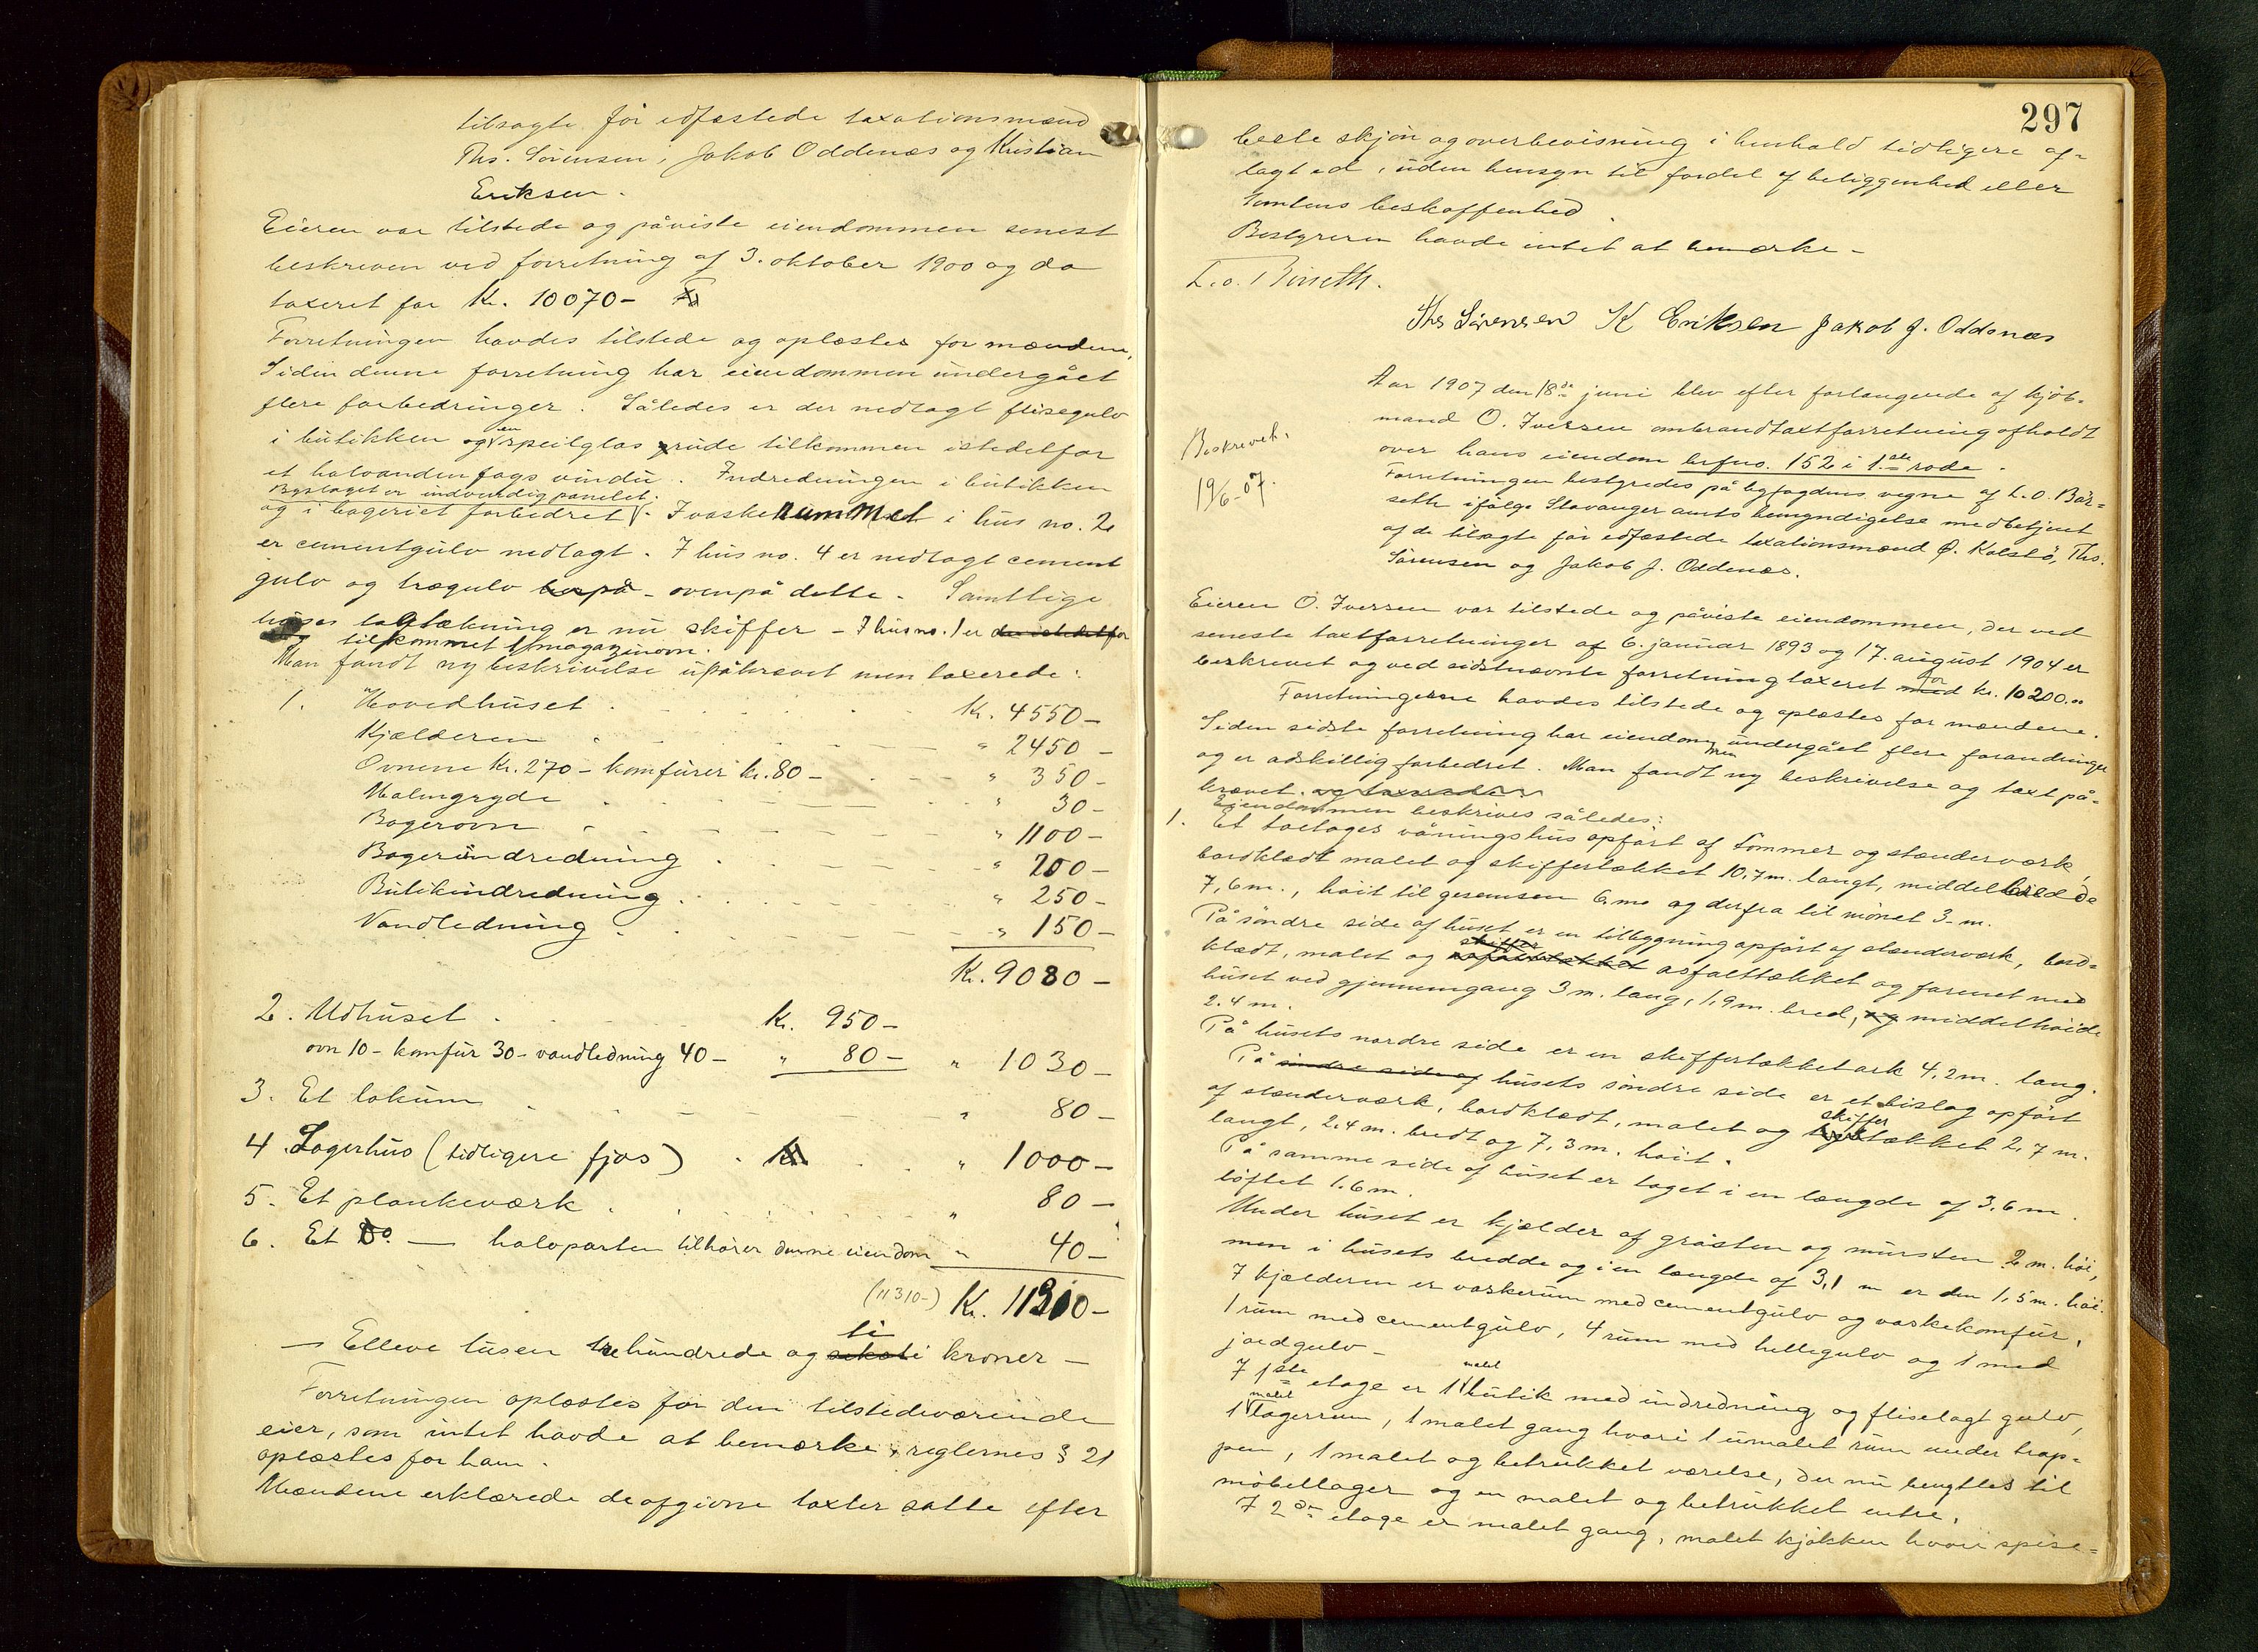 tilsagte før edfæstede taxationsmænd
Ths. Sørensen, Jakob Oddenæs og Kristian
Eriksen.
Eieren var tilstede og påviste eiendommen senest
beskreven ved forretning af 3. oktober 1900 og da
taxeret for Kr. 10070-
Forretningen havdes tilstede og oplæstes for mændene.
Siden denne forretning har eiendommen undergået
flere forbedringer. Således er der nedlagt flisegulv
i butikken og en speilglas rude tilkommen istedetfor
et halvanden fags vindu. Indredningen i butikken
Bislaget er indvendig panelet.
og i bageriet forbedret. I vaskerummet i hus no. 2
er cementgulv nedlagt. I hus no. 4 er nedlagt cement
gulv og trægulv ovenpå dette. Samtlige
huses tagtækning er nu skiffer - I hus no. 1 er der istedetfor
tilkommet 1 magazinovn.
Man fandt ny beskrivelse upåkrævet men taxerede:
1. Hovedhuset Kr. 4550-
Kjælderen " 2450-
Ovnene Kr. 270- komfurer kr. 80- " 350-
Malmgryde " 30-
Bagerovn " 1100-
Bagerindredning " 200-
Butikindredning " 250-
Vandledning " 150-
Kr. 9080-
2. Udhuset Kr. 950-
ovn 10- komfur 30- vandledning 40- " 80- " 1030-
3. Et lokum " 80-
4. Lagerhus (tidligere fjøs) " 1000-
5. Et plankeværk " 80-
6. Et Do. — halvparten tilhører denne eiendom " 40-
(11310-) Kr. 11310-
ti
— Elleve tusen tre hundrede og kroner —
Forretningen oplæstes for den tilstedeværende
eier, som intet havde at bemærke, reglernes § 21
oplæstes for ham.
Mændene erklærede de afgivne taxter satte efter
297
beste skjøn og overbevisning i henhold tidligere af-
lagt ed, uden hensyn til fordel af beliggenhed eller
tomtens beskaffenhed.
Bestyreren havde intet at bemærke-
L. o. Børseth.
Ths Sørensen K Eriksen Jakob J. Oddenæs
Aar 1907 den 18de juni blev efter forlangende af kjøb-
mand O. Iversen ombrandtaxtforretning afholdt
over hans eiendom brfno. 152 i 1.ste rode.
Beskrevet.
19/6-07.
Forretningen bestyredes på byfogdens vegne af L. O. Bør-
seth ifølge Stavanger amts bemyndigelse med betjent
af de tilsagte før edfæstede taxationsmænd O. Kolstø, Ths.
Sørensen og Jakob J. Oddenæs.
Eieren O. Iversen var tilstede og påviste eiendommen, der ved
seneste taxtforretninger af 6. januar 1893 og 17. august 1904 er
beskrevet og ved sidstnævnte forretning taxeret for kr. 10200.00
Forretningerne havdes tilstede og oplæstes for mændene.
Siden sidste forretning har eiendommen undergået flere forandringer
og er adskillig forbedret. Man fandt ny beskrivelse og taxt på-
krævet. og taxeredes
Eiendommen beskrives således:
1. Et toetages våningshus opført af tømmer og stænderværk,
bordklædt malet og skiffertækket 10,7 m. langt, middelbredde
7,6 m., høit til gesemsen 6 m. og derfra til mønet 3- m.
På søndre side af huset er en tilbygning opført af stænderværk, bord-
klædt, malet og asfalttækket og forenet med
huset ved gjennemgang 3 m. lang, 1,9 m. bred, og middelhøide
2.4 m.
På husets nordre side er en skiffertækket ark 4,2 m. lang.
På søndre side af husets søndre side er et bislag opført
af stænderværk, bordklædt, malet og skiffertækket 2,7 m.
langt, 2,4 m. bredt og 7,3 m. høit.
På samme side af huset er taget i en længde af 3,6 m.
løftet 1.6 m.
Under huset er kjælder af gråsten og mursten 2 m. høi,
men i husets bredde og i en længde af 3,1 m er den 1,5 m. høi.
I kjælderen er vaskerum med cementgulv og vaskekomfur,
1 rum med cementgulv, 4 rum med hellegulv og 1 med
jordgulv-
I 1ste etage er 1 malet butik med indredning og fliselagt gulv,
1 malet lagerrum, 1 malet gang hvori 1 umalet rum under trap-
pen, 1 malet og betrukket værelse, der nu benyttes til
møbellager og en malet og betrukket entre.
I 2den etage er malet gang, malet kjøkken hvori spise-